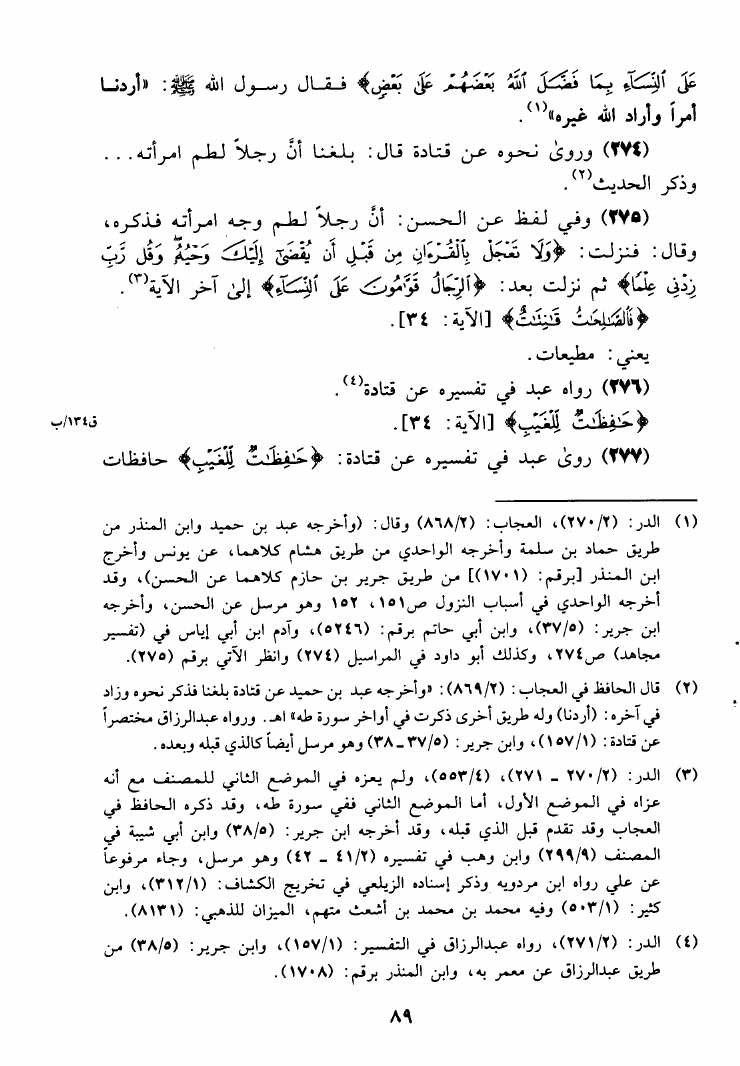 عَلَى ٱلنِّسَآءِ بِمَا فَضَّلَ ٱللَّهُ بَعْضَهُمْ عَلَىٰ بَعْضٍ﴾ فـقـال رسـول الله ﷺ: «أردنـا
أمراً وأراد الله غيره»(١).
(٢٧٤) وروىٰ نحوه عـن قـتادة قال: بـلغـنا أنَّ رجـلاً لـطم امـرأته...
وذكر الحديث(٢).
(٢٧٥) وفي لفظ عن الحسن: أنَّ رجلاً لطم وجه امرأته فذكره،
وقال: فنزلت: ﴿وَلَا تَعْجَلْ بِٱلْقُرْءَانِ مِن قَبْلِ أَن يُقْضَىٰٓ إِلَيْكَ وَحْيُهُۥ وَقُل رَّبِّ
زِدْنِى عِلْمًا﴾ ثم نزلت بعد: ﴿ٱلرِّجَالُ قَوَّٰمُونَ عَلَى ٱلنِّسَآءِ﴾ إلىٰ آخر الآية(٣).
﴿فَٱلصَّٰلِحَٰتُ قَٰنِتَٰتٌ﴾ [الآية: ٣٤].
يعني: مطيعات.
(٢٧٦) رواه عبد في تفسيره عن قتادة(٤).
﴿حَٰفِظَٰتٌ لِّلْغَيْبِ﴾ [الآية: ٣٤].
ق١٣٤/ب
(٢٧٧) روىٰ عبد في تفسيره عن قتادة: ﴿حَٰفِظَٰتٌ لِّلْغَيْبِ﴾ حافظات
(١) الدر: (٢٧٠/٢)، العجاب: (٨٦٨/٢) وقال: (وأخرجه عبد بن حميد وابن المنذر من
طريق حماد بن سلمة وأخرجه الواحدي من طريق هشام كلاهما، عن يونس وأخرج
ابن المنذر [برقم: (١٧٠١)] من طريق جرير بن حازم كلاهما عن الحسن)، وقد
أخرجه الواحدي في أسباب النزول ص١٥١، ١٥٢ وهو مرسل عن الحسن، وأخرجه
ابن جرير: (٣٧/٥)، وابن أبي حاتم برقم: (٥٢٤٦)، وآدم ابن أبي إياس في (تفسير
مجاهد) ص٢٧٤، وكذلك أبو داود في المراسيل (٢٧٤) وانظر الآتي برقم (٢٧٥).
(٢) قال الحافظ في العجاب: (٨٦٩/٢): «وأخرجه عبد بن حميد عن قتادة بلغنا فذكر نحوه وزاد
في آخره: (أردنا) وله طريق أخرى ذكرت في أواخر سورة طه» اهـ. ورواه عبدالرزاق مختصراً
عن قتادة: (١٥٧/١)، وابن جرير: (٣٧/٥ـ٣٨) وهو مرسل أيضاً كالذي قبله وبعده.
(٣) الدر: (٢٧٠/٢ ـ ٢٧١)، (٥٥٣/٤)، ولم يعزه في الموضع الثاني للمصنف مع أنه
عزاه في الموضع الأول، أما الموضع الثاني ففي سورة طه، وقد ذكره الحافظ في
العجاب وقد تقدم قبل الذي قبله، وقد أخرجه ابن جرير: (٣٨/٥) وابن أبي شيبة في
المصنف (٢٩٩/٩) وابن وهب في تفسيره (٤١/٢ ـ ٤٢) وهو مرسل، وجاء مرفوعاً
عن علي رواه ابن مردويه وذكر إسناده الزيلعي في تخريج الكشاف: (٣١٢/١)، وابن
كثير: (٥٠٣/١) وفيه محمد بن محمد بن أشعث متهم، الميزان للذهبي: (٨١٣١).
(٤) الدر: (٢٧١/٢)، رواه عبدالرزاق في التفسير: (١٥٧/١)، وابن جرير: (٣٨/٥) من
طريق عبدالرزاق عن معمر به، وابن المنذر برقم: (١٧٠٨).
٨٩